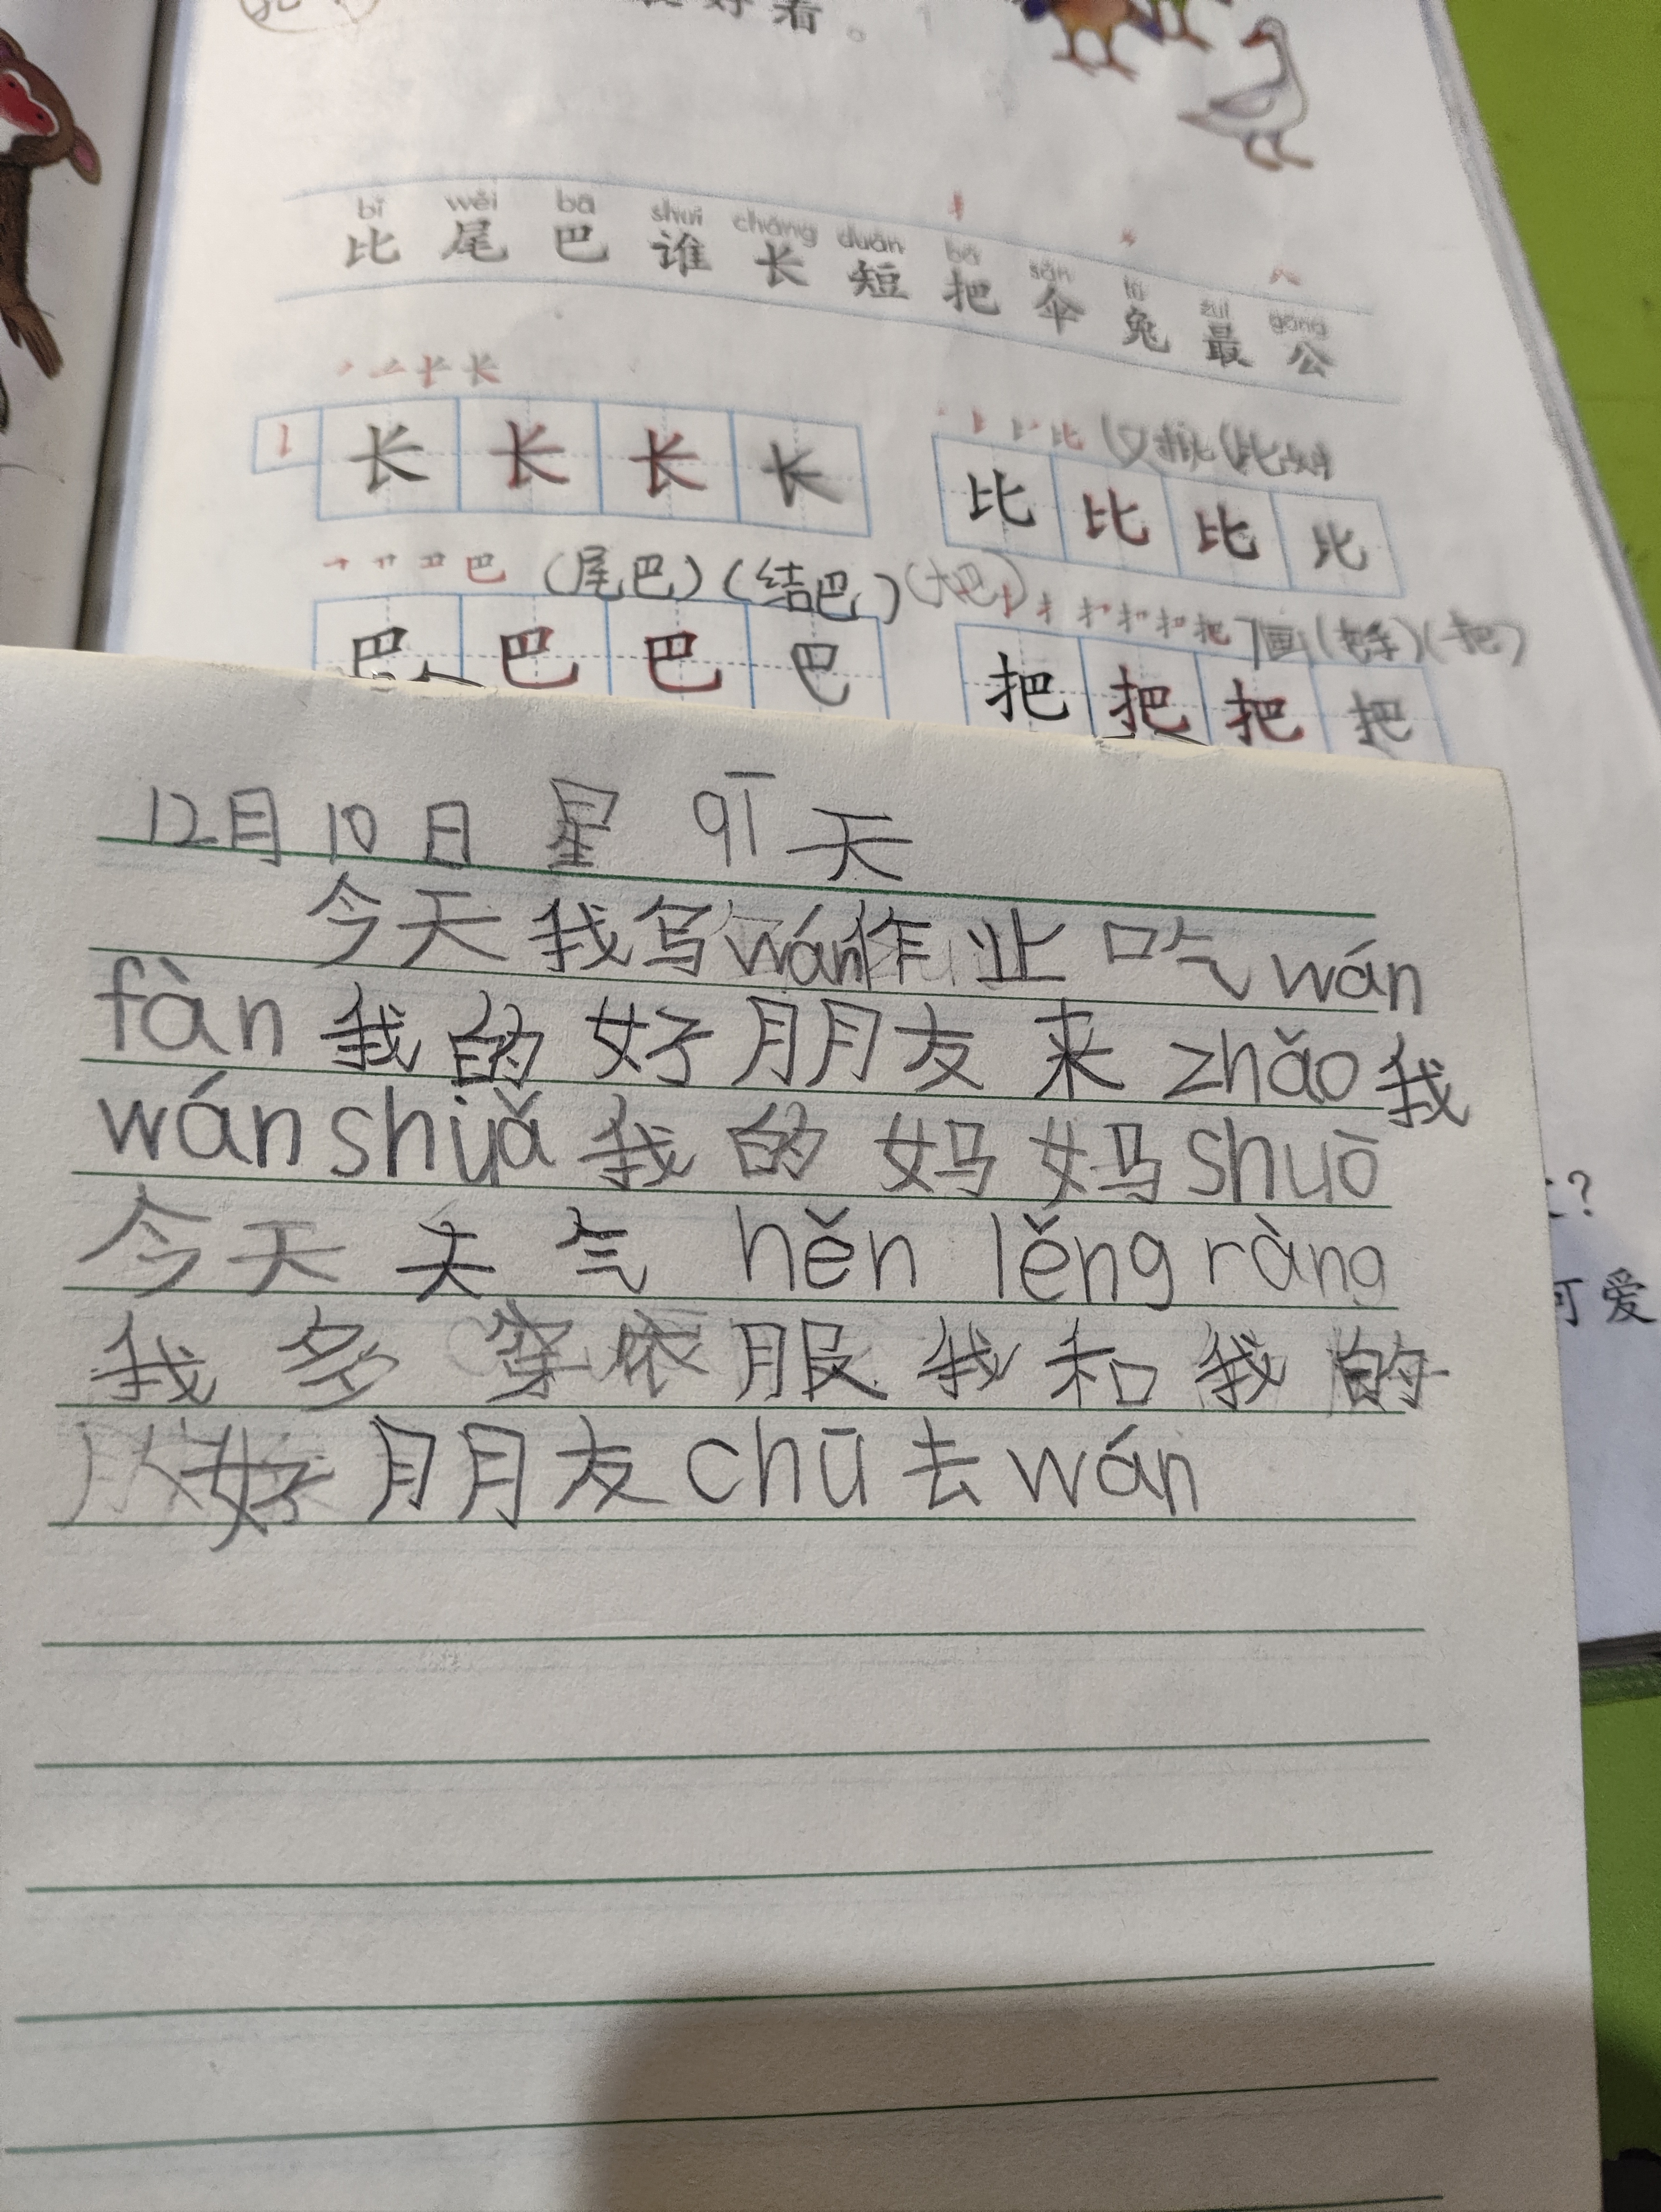 好看。
bǐ wěi bā shuí cháng duǎn bǎ sǎn tù zuì gōng
比 尾 巴 谁 长 短 把 伞 兔 最 公
长 长 长 长
比 比 比 比
(尾巴)(结巴)(大巴)
巴 巴 巴 巴
把 把 把 把
12月10日 星 qī 天
今天我写wán作业吃wán
fàn我的好朋友来zhǎo我
wánshuǎ我的妈妈shuō
今天天气 hěn lěng ràng
我多穿依服我和我的
好朋友chū去wán
?
可爱